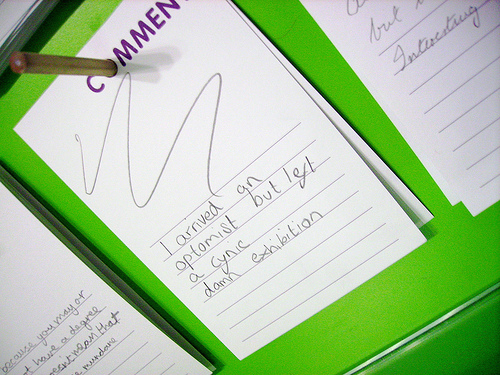 COMMEN
I arrived an
optomist but left
a cynic
damn exhibition
but
Interesting
because you may or
have a degree
that